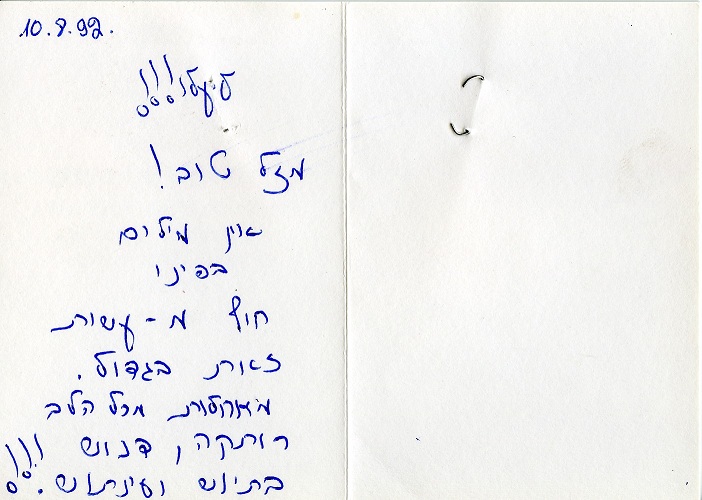 10.8.92.
ליעלי!!!
מזל טוב!
אין מילים
בפינו
חוץ מ-עשות
זאת בגדול.
מאחלות מכל הלב
רותקה, דנוש !!!
בתיוש ועינתוש.